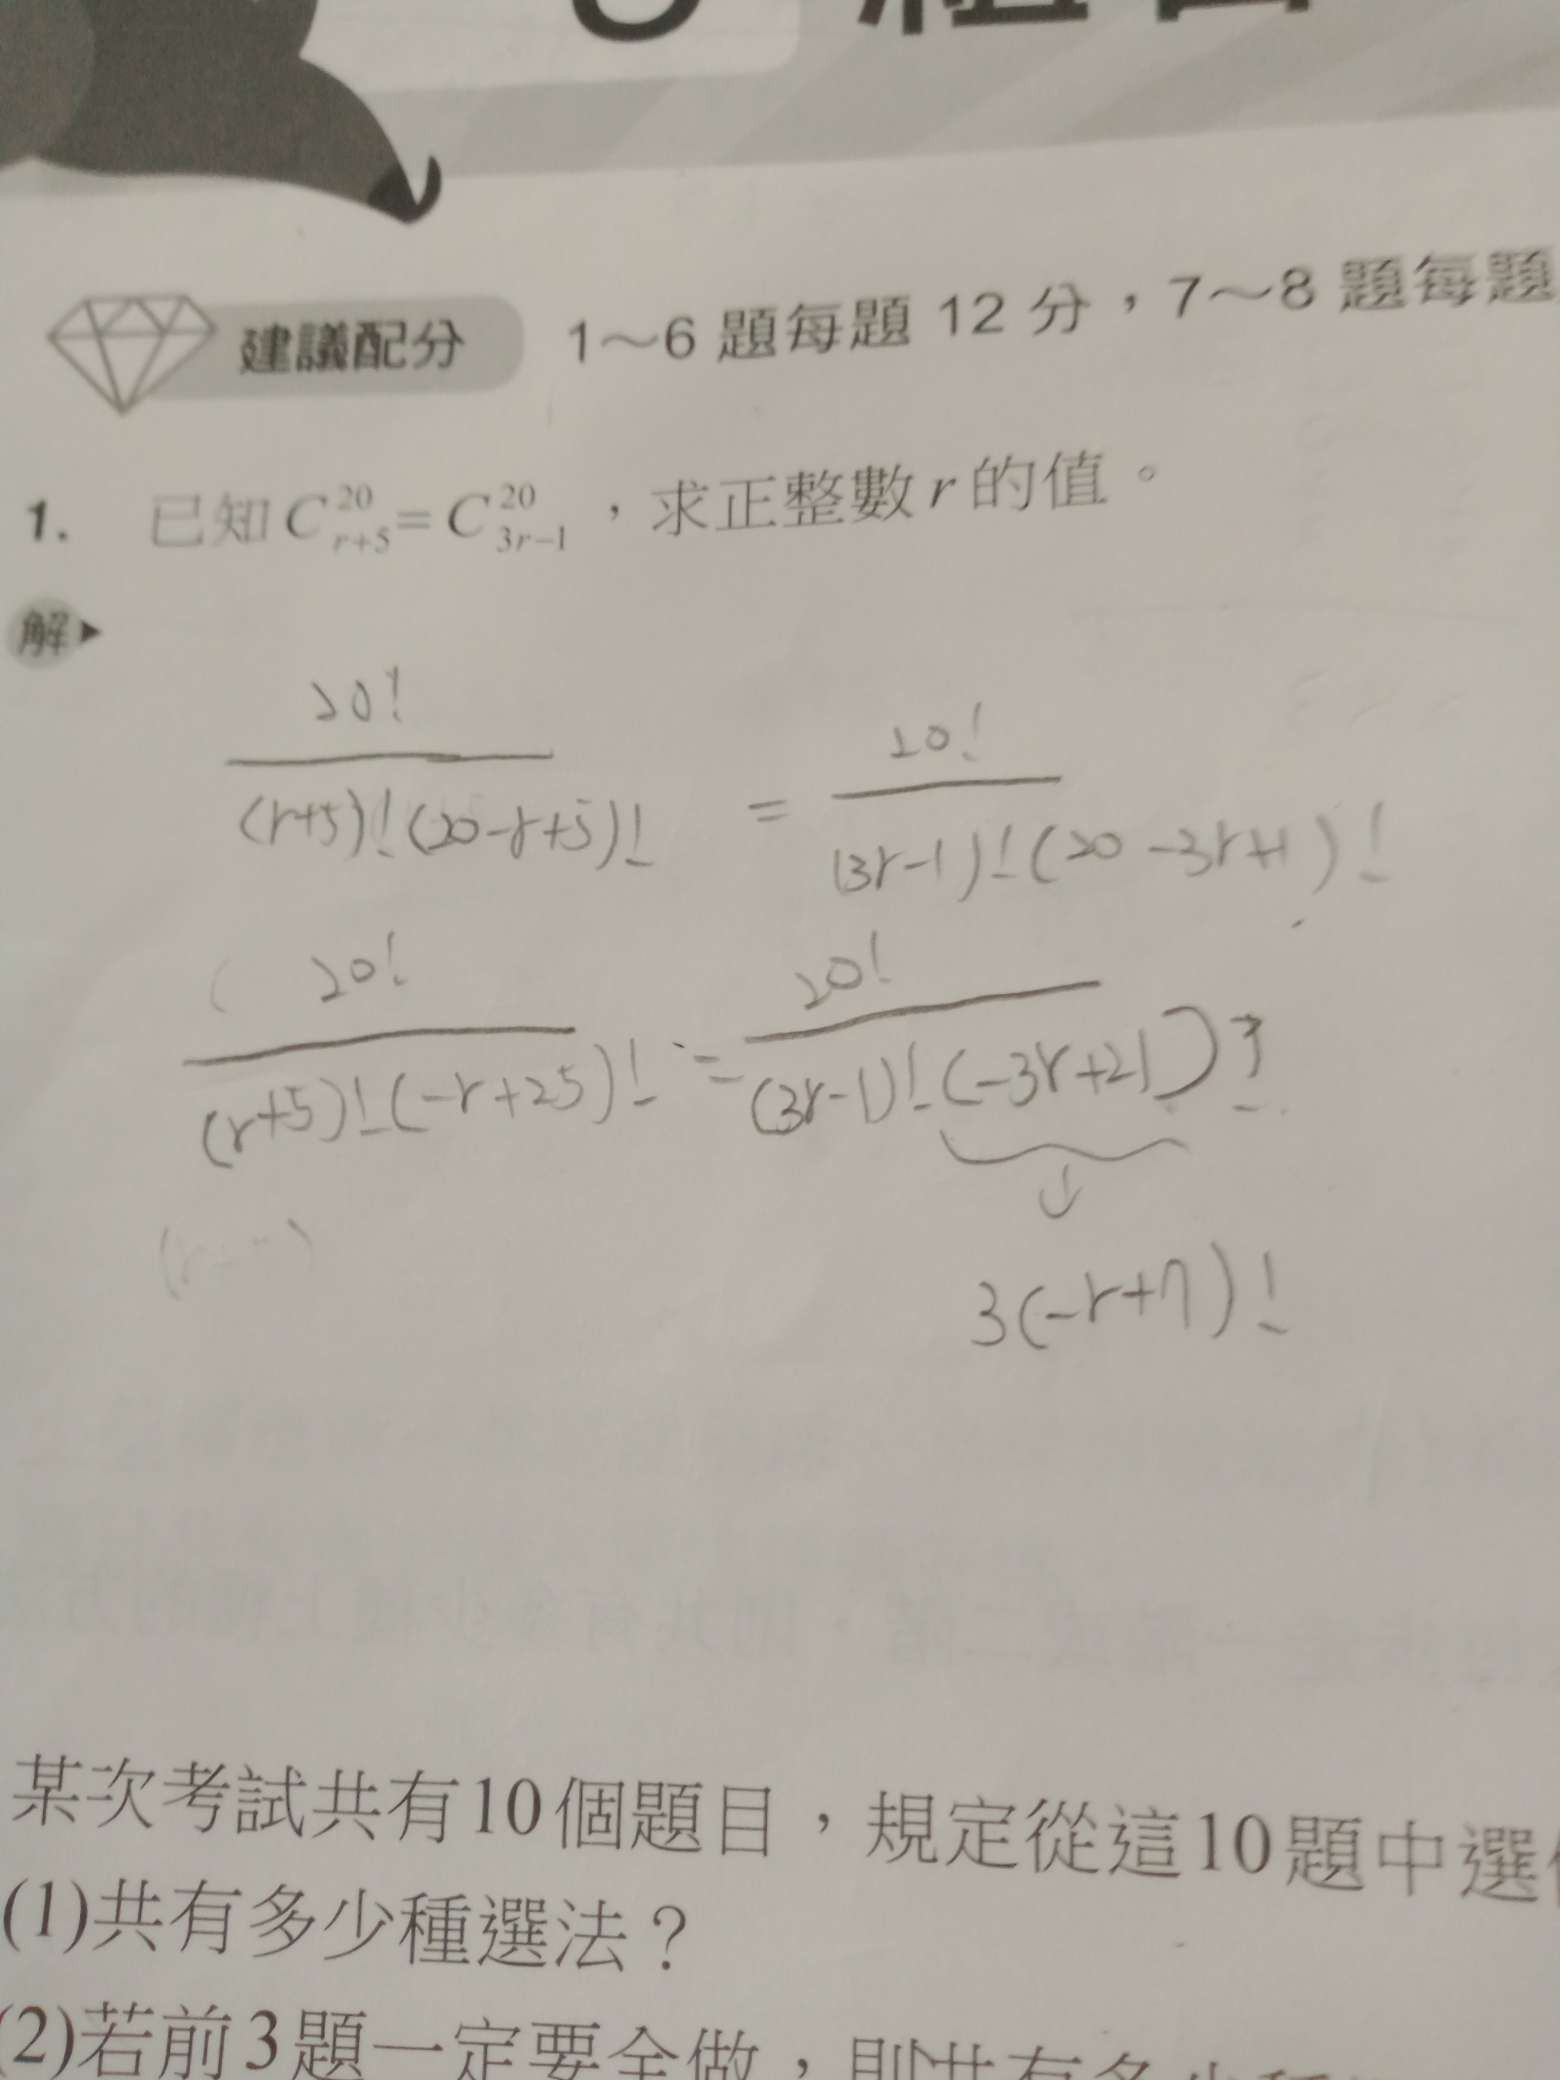 建議配分 1～6 題每題 12 分，7～8 題每題
1. 已知 C^{20}_{r+5} = C^{20}_{3r-1}，求正整數 r 的值。
解▶
20! / (r+5)!(20-r+5)! = 20! / (3r-1)!(20-3r+1)!
20! / (r+5)!(-r+25)! = 20! / (3r-1)!(-3r+21)!
↓
3(-r+7)!
某次考試共有10個題目，規定從這10題中選
(1)共有多少種選法？
(2)若前3題一定要全做，則共有多少種